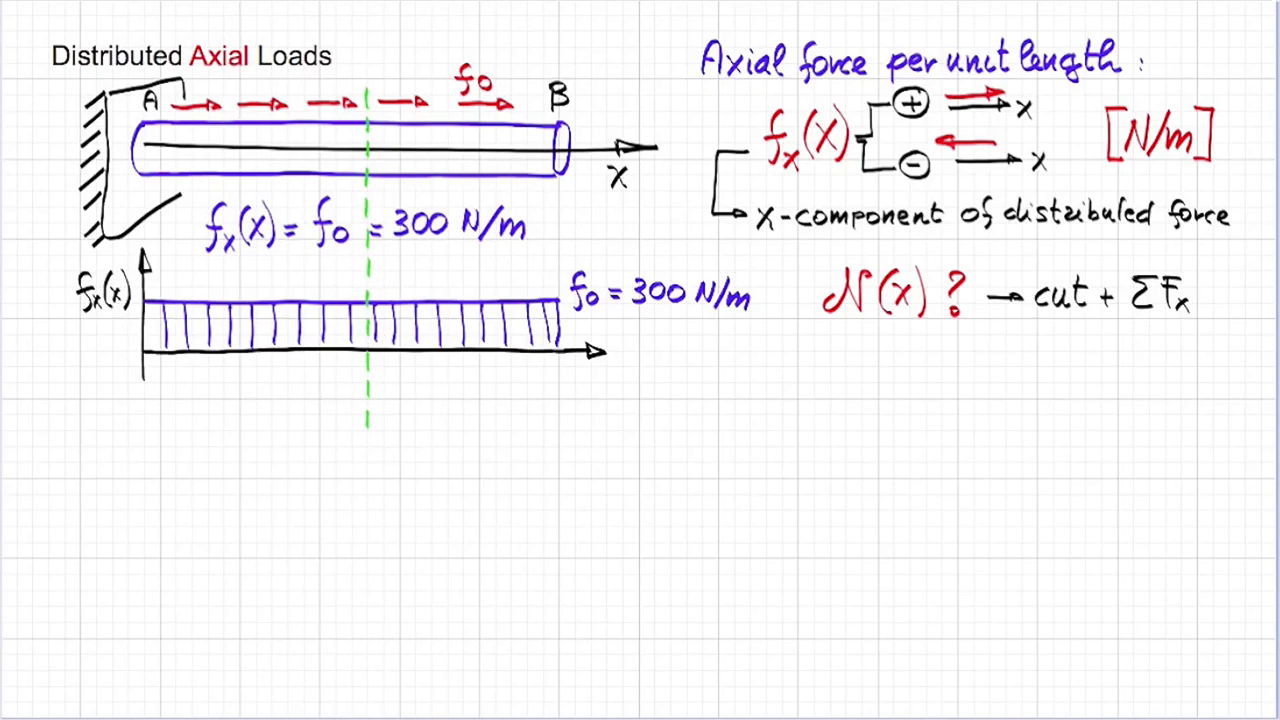 Distributed Axial Loads
A
f0
B
x
fx(x) = f0 = 300 N/m
fx(x)
f0 = 300 N/m
Axial force per unit length :
fx(x)
+
x
-
x
[N/m]
x-component of distributed force
N(x) ? → cut + ΣFx